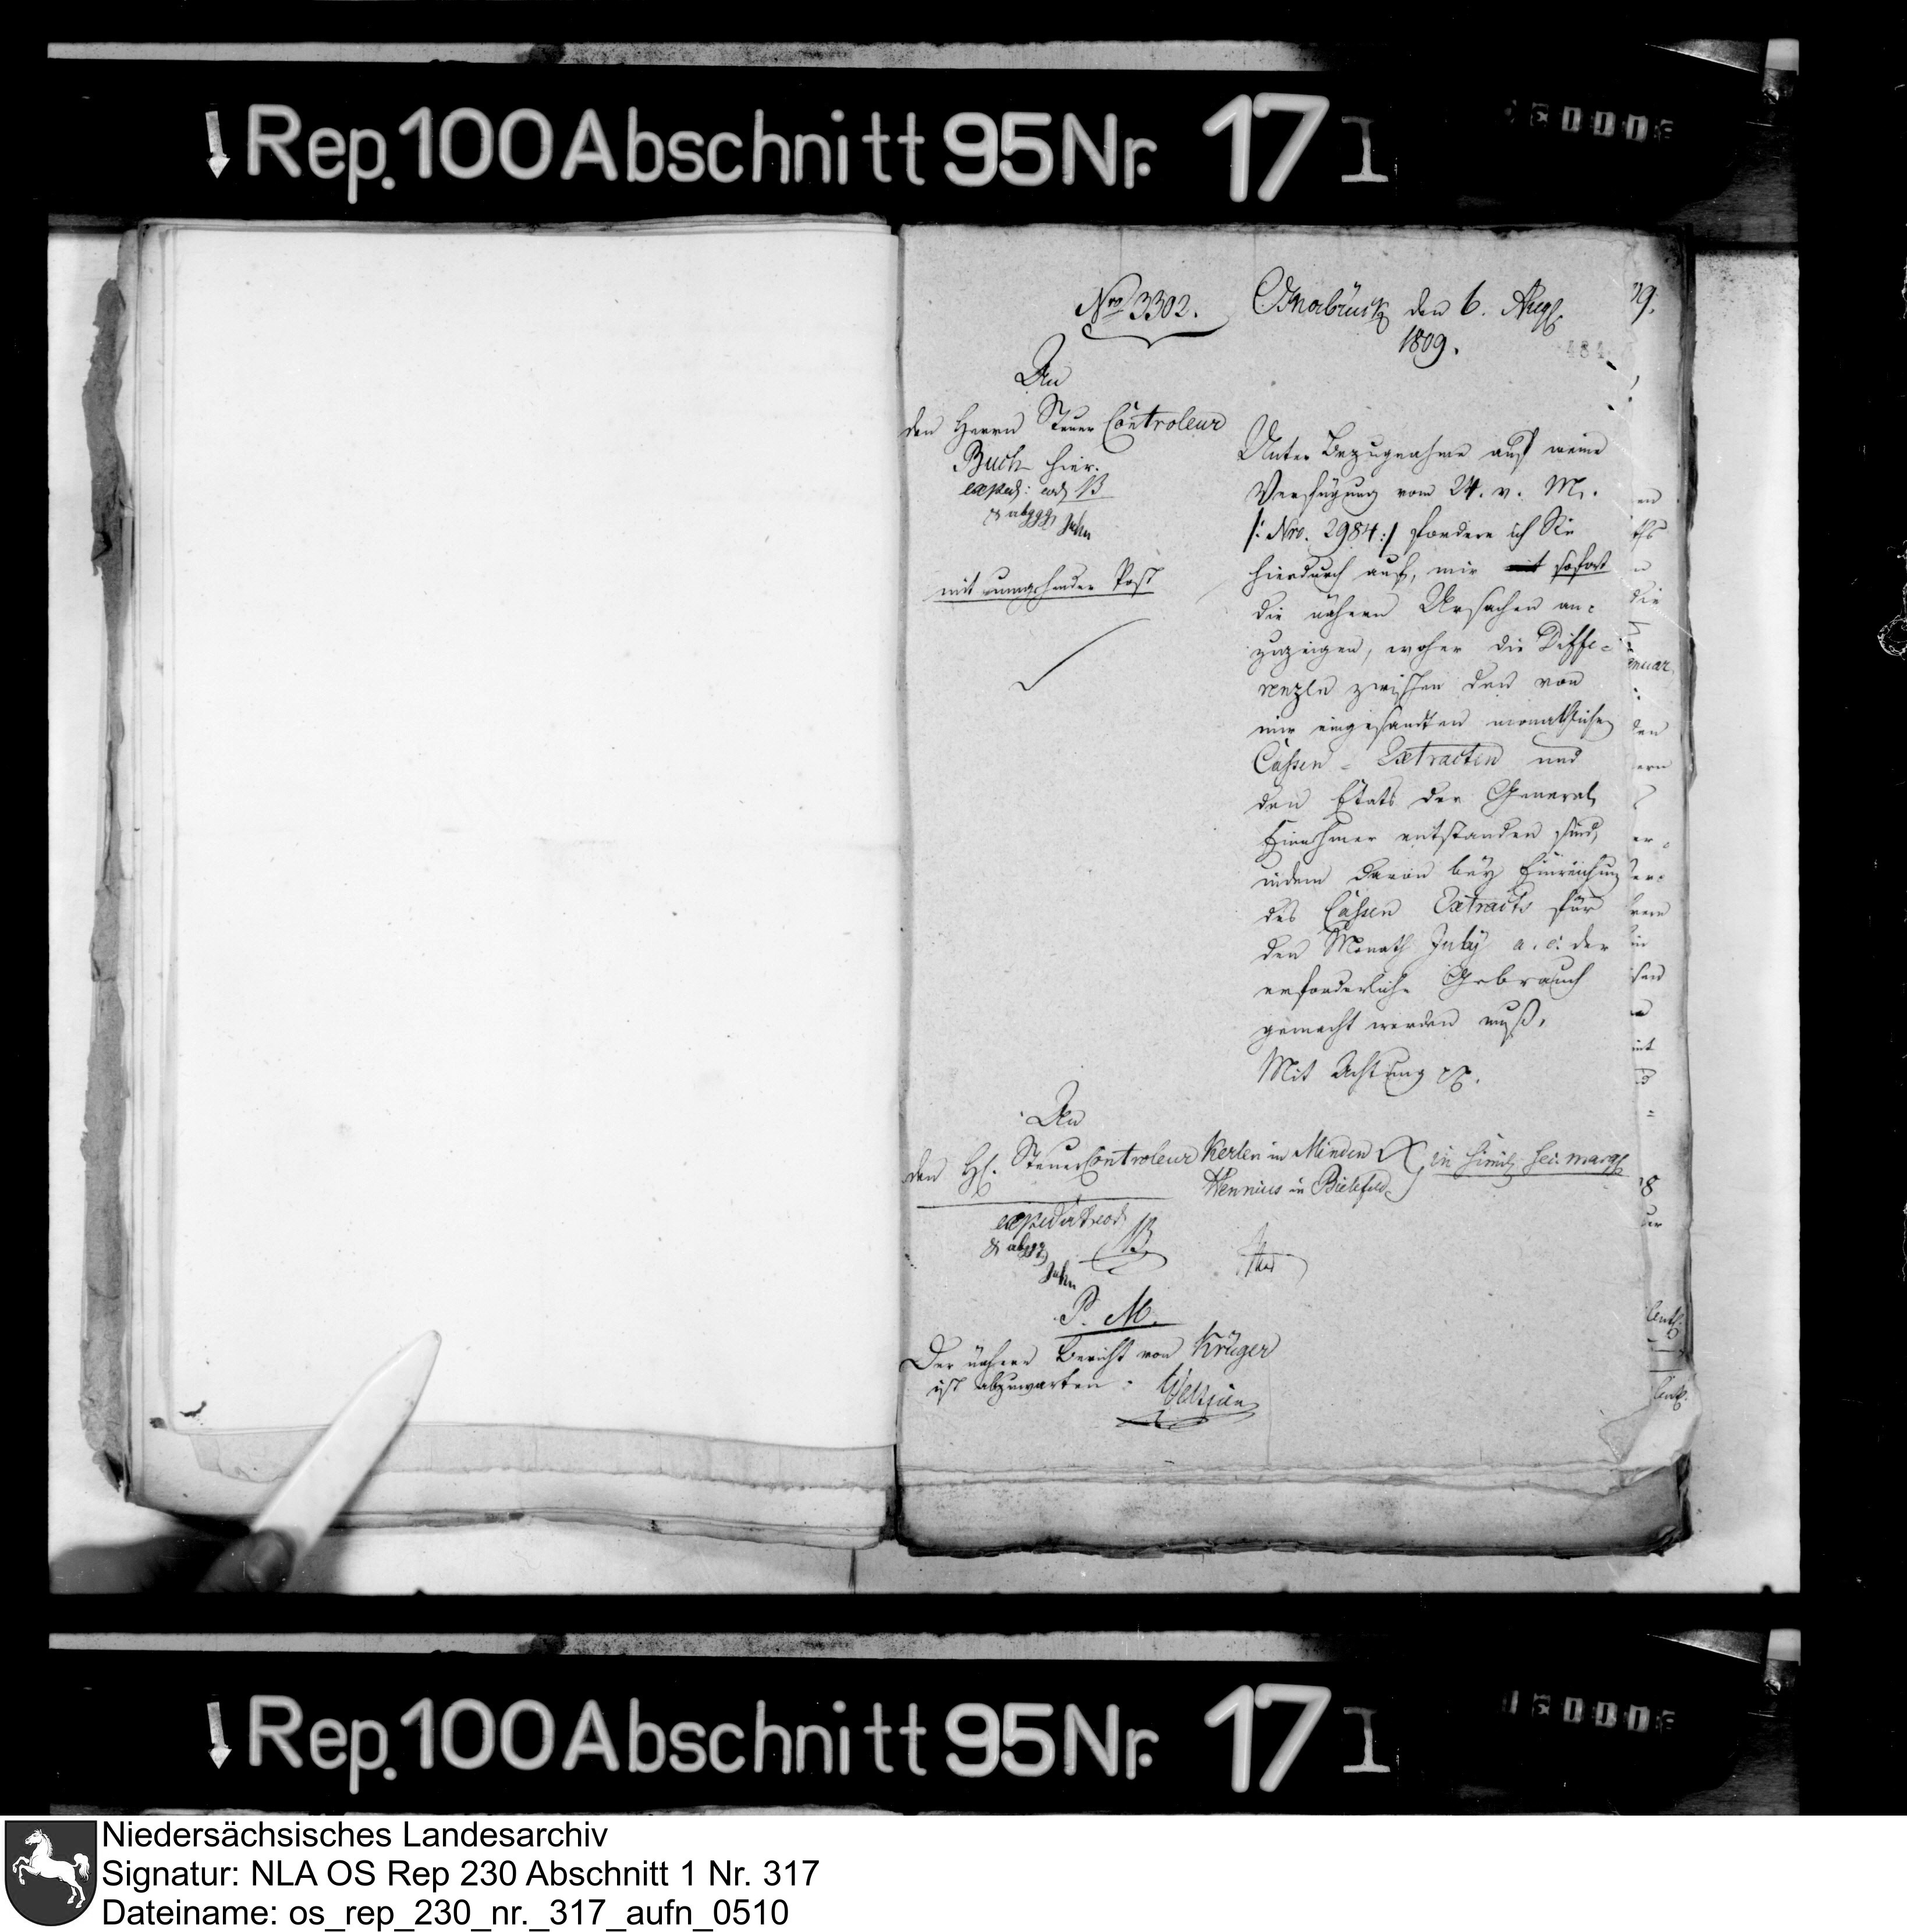 Rep. 100 Abschnitt 95 Nr. 17 I
Nro 3302.
Osnabrück den 6. Aug.
1809.
484
An
den Herrn Steuer Controleur
Buch hier.
exped: eod B
& abggg Jahn
mit umgehender Post
Unter Bezugnahme auf meine
Verfügung vom 24. v. M.
/: Nro. 2984 :/ fordere ich Sie
hierdurch auf, mir mit sofort
die nähern Ursachen an=
zuzeigen, woher die Diffe=
renzen zwischen den von
mir eingesandten monathlichen
Cassen=Extracten und
den Etats der General
Einnehmer entstanden sind,
indem davon bey Einreichung
des Cassen Extracts für
den Monath July a. c. der
erforderliche Gebrauch
gemacht werden muß.
Mit Achtung
An
den H. Steuer Controleur Kerlen in Minden
Wennius in Bielefeld
in simili
B
Jahn
P. M.
Der nähere Bericht von Krüger
ist abzuwarten.
Rep. 100 Abschnitt 95 Nr. 17 I
Niedersächsisches Landesarchiv
Signatur: NLA OS Rep 230 Abschnitt 1 Nr. 317
Dateiname: os_rep_230_nr._317_aufn_0510